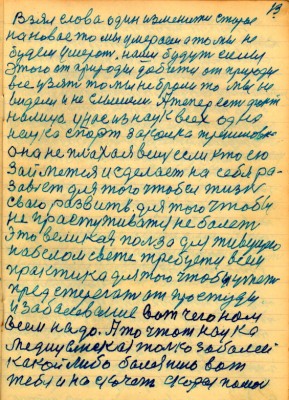 13
Взял слова один изменить старое
на новое то мы умерали а то мы не
будем умерать, наши будут силы
Этого от природы добиты от природы
все взят то мы не брали то мы не
видели и не слышим. А теперь ест факт
на лицо у нас из наук всех одна
наука спорт закалка тренировка
она не плахая вещ если кто ею
займется и сделает на себя ра-
завьет для того чтобы жизн
сваю развить, для того чтобы
не простуживатся не балет
Это великая полза для живущего
на белом свете требует всем
практика для того чтобы умет
предстерегат от простуды
и забалевание вот чего нам
всем надо. А то что то наука
медицинская толко забалей
какой либо балезнию вот
тебя и на скочат скорая помощ